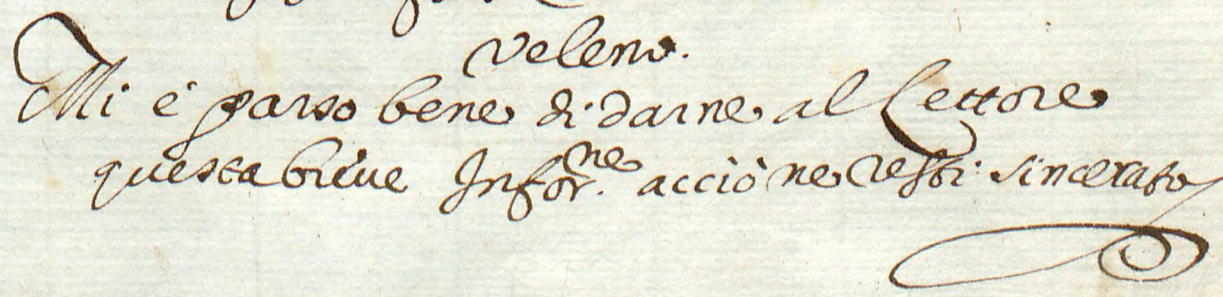 veleno.
Mi è parso bene di darne al Lettore
questa breue Infor.ne acciò ne resti sincerato